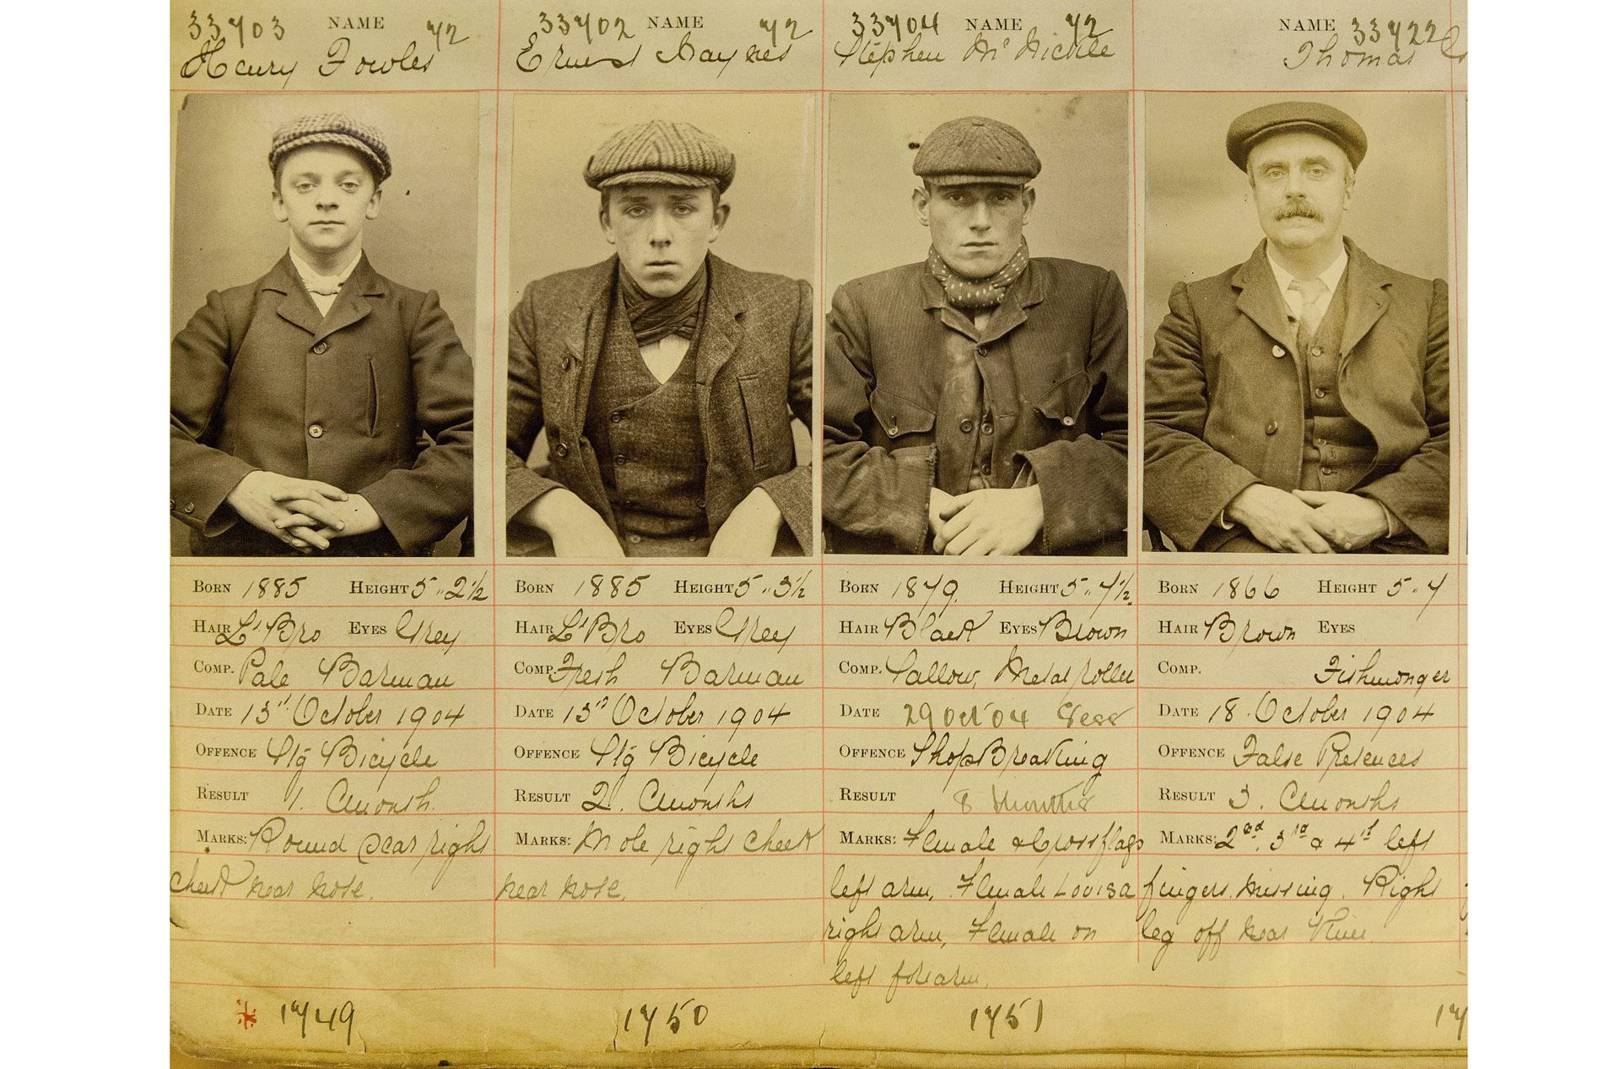 33703 NAME 72
Henry Fowles
33702 NAME 72
Ernest Haynes
33704 NAME 72
Stephen McNickle
NAME 33722
Thomas
BORN 1885 HEIGHT 5..2½
HAIR Lt Bro EYES Grey
COMP. Pale Barman
DATE 13th October 1904
OFFENCE Stg Bicycle
RESULT 1. Cmonth.
MARKS: Round scar right
cheek near nose.
* 1749
BORN 1885 HEIGHT 5..3½
HAIR Lt Bro EYES Grey
COMP. Fresh Barman
DATE 13th October 1904
OFFENCE Stg Bicycle
RESULT 2. Cmonths
MARKS: Mole right cheek
near nose.
1750
BORN 1879. HEIGHT 5..7½.
HAIR Black EYES Brown
COMP. Sallow, Metal roller
DATE 29 Oct 04 Sess
OFFENCE ShopBreaking
RESULT 8 Months
MARKS: Female & Crossflags
left arm, Female Lovisa
right arm, Female on
left forearm.
1751
BORN 1866 HEIGHT 5.7
HAIR Brown EYES
COMP. Fishmonger
DATE 18. October 1904
OFFENCE False Pretences
RESULT 3. Cmonths
MARKS: 2nd, 3rd & 4th left
fingers missing. Right
leg off near knee